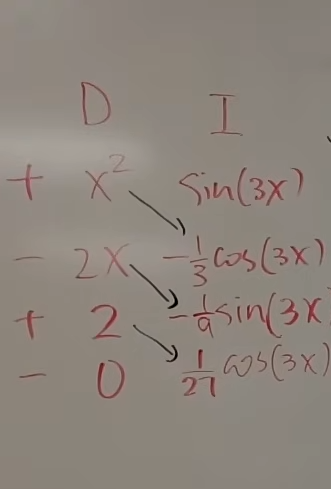 D I
+ x² sin(3x)
- 2x -1/3 cos(3x)
+ 2 -1/9 sin(3x
- 0 1/27 cos(3x)